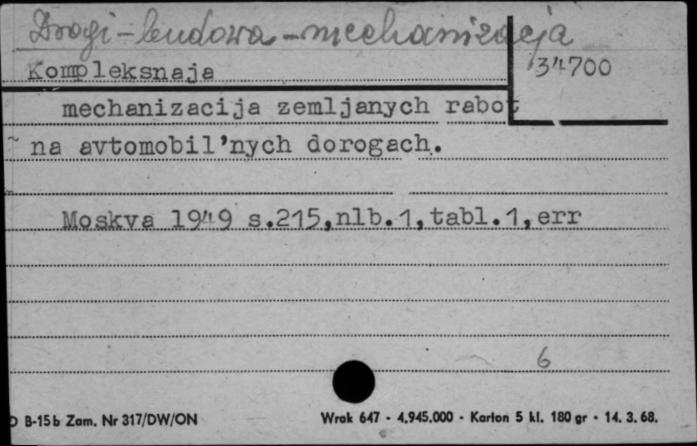 Drogi - budowa - mechanizacja
Kompleksnaja
34700
mechanizacija zemljanych rabot
na avtomobil'nych dorogach.
Moskva 1949 s.215,nlb.1,tabl.1,err
6
B-15b Zam. Nr 317/DW/ON
Wrak 647 - 4.945.000 - Karton 5 kl. 180 gr - 14. 3. 68.